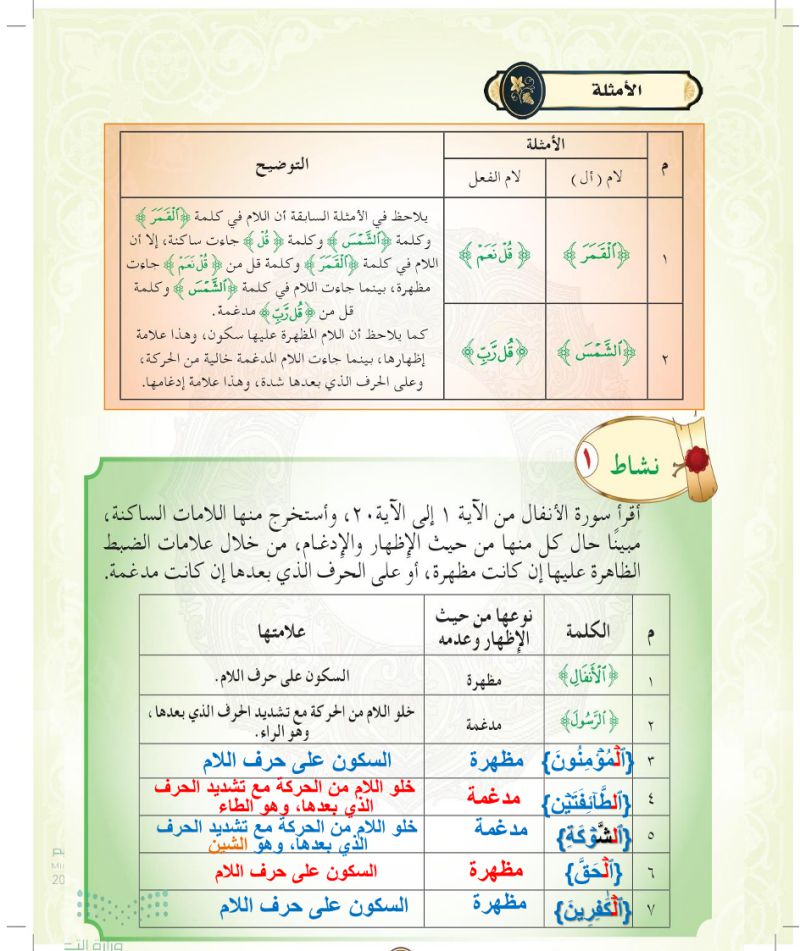 الأمثلة
م
الأمثلة
التوضيح
لام (أل)
لام الفعل
١
﴿ٱلۡقَمَرَ﴾
﴿قُلۡ نَعَمۡ﴾
يلاحظ في الأمثلة السابقة أن اللام في كلمة ﴿ٱلۡقَمَرَ﴾
وكلمة ﴿ٱلشَّمۡسَ﴾ وكلمة ﴿قُلۡ﴾ جاءت ساكنة، إلا أن
اللام في كلمة ﴿ٱلۡقَمَرَ﴾ وكلمة قل من ﴿قُلۡ نَعَمۡ﴾ جاءت
مظهرة، بينما جاءت اللام في كلمة ﴿ٱلشَّمۡسَ﴾ وكلمة
قل من ﴿قُل رَّبِّ﴾ مدغمة.
كما يلاحظ أن اللام المظهرة عليها سكون، وهذا علامة
إظهارها، بينما جاءت اللام المدغمة خالية من الحركة،
وعلى الحرف الذي بعدها شدة، وهذا علامة إدغامها.
٢
﴿ٱلشَّمۡسَ﴾
﴿قُل رَّبِّ﴾
نشاط ١
أقرأ سورة الأنفال من الآية ١ إلى الآية٢٠، وأستخرج منها اللامات الساكنة،
مبينًا حال كل منها من حيث الإظهار والإدغام، من خلال علامات الضبط
الظاهرة عليها إن كانت مظهرة، أو على الحرف الذي بعدها إن كانت مدغمة.
م
الكلمة
نوعها من حيث
الإظهار وعدمه
علامتها
١
﴿ٱلۡأَنفَالِ﴾
مظهرة
السكون على حرف اللام.
٢
﴿ٱلرَّسُولَ﴾
مدغمة
خلو اللام من الحركة مع تشديد الحرف الذي بعدها،
وهو الراء.
٣
{ٱلۡمُؤۡمِنُونَ}
مظهرة
السكون على حرف اللام
٤
{ٱلطَّآئِفَتَيۡنِ}
مدغمة
خلو اللام من الحركة مع تشديد الحرف
الذي بعدها، وهو الطاء
٥
{ٱلشَّوۡكَةِ}
مدغمة
خلو اللام من الحركة مع تشديد الحرف
الذي بعدها، وهو الشين
٦
{ٱلۡحَقَّ}
مظهرة
السكون على حرف اللام
٧
{ٱلۡكَٰفِرِينَ}
مظهرة
السكون على حرف اللام